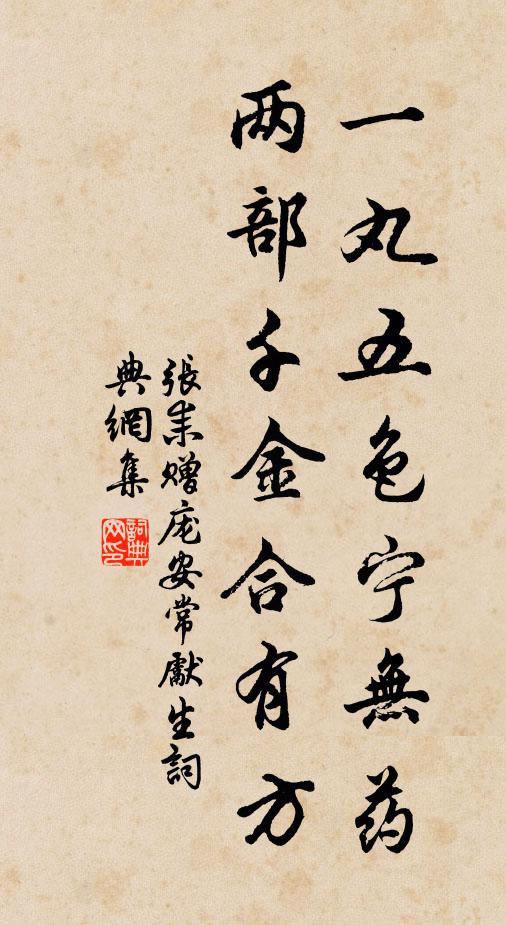 一丸五色宁無药
两部千金合有方
張耒赠庞安常獻生詞
典網集
詞典网印